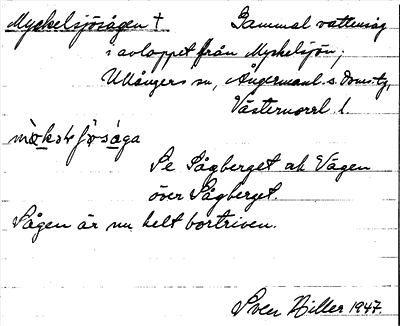 Myckelsjösågen † Gammal vattensåg
i avloppet från Myckelsjön,
Ullångers sn, Ångermanl. s. doms.
Västernorrl. l.
Se Sågberget och Vägen
över Sågberget.
Sågen är nu helt bortriven.
Sven Hiller 1947.